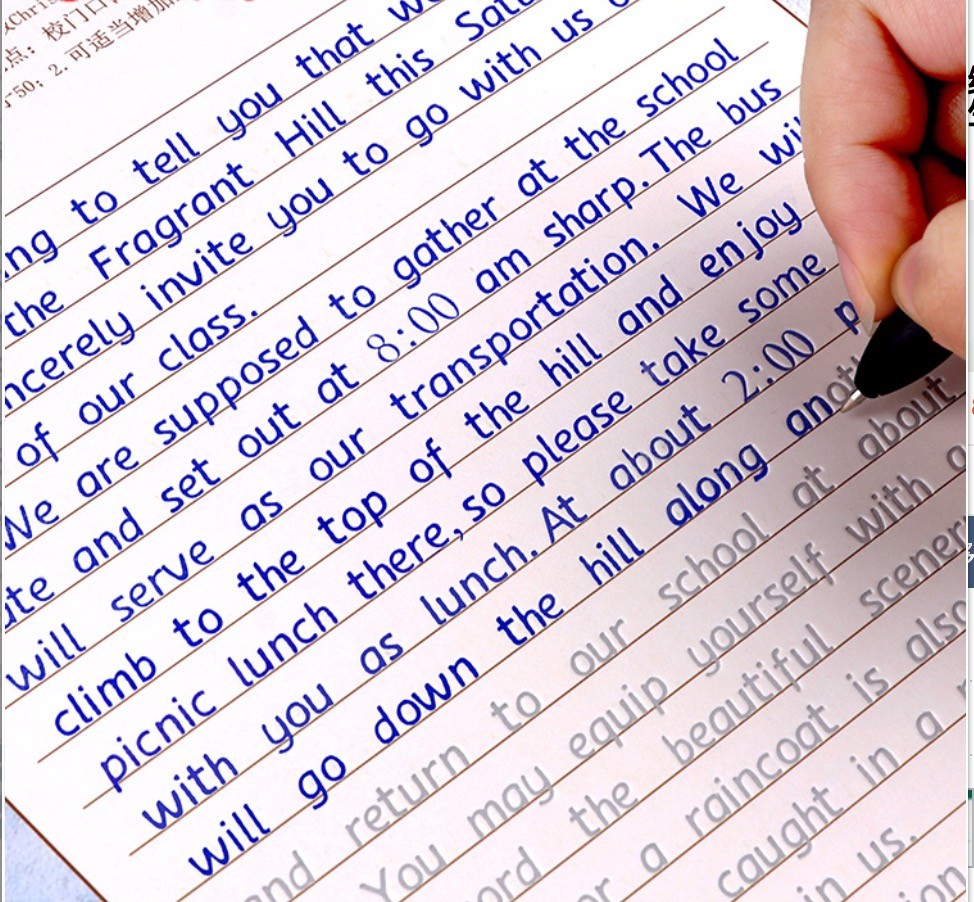 点：校门口
50；2.可适当增加
to tell you that
the Fragrant Hill this
sincerely invite you to go with us
of our class.
We are supposed to gather at the school
and set out at 8:00 am sharp. The bus
will serve as our transportation. We
climb to the top of the hill and enjoy
picnic lunch there, so please take some
with you as lunch. At about 2:00
will go down the hill along
and return to our school at about
You may equip yourself with
the beautiful
a raincoat is also
caught in a
in us.